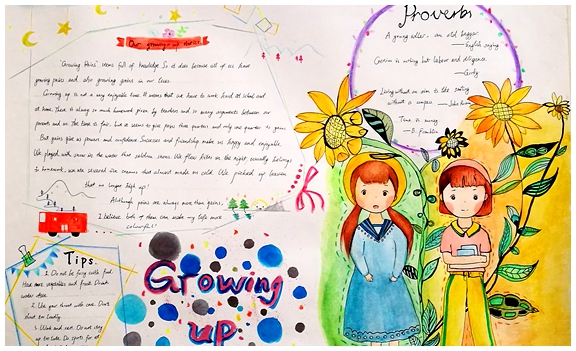 Our growing-up stories
"Growing Pains" seems full of knowledge. So it does because all of us have
growing pains and also growing gains in our lives.
Growing up is not a very enjoyable time. It means that we have to work hard at school and
at home. There is always so much homework given by teachers and so many arguments between our
parents and us. The time is fair, but it seems to give pains three quarters and only one quarter to gains.
But pains give us powers and confidence. Successes and friendship make us happy and enjoyable.
We played with snow in the water that seldom snows. We
to homework, we ate several ice creams that almost made us cold. We
that no longer high up!
Although pains are always more than gains,
I believe both of them can make my life more
colourful!
Tips.
1. Do not be fussy with food.
Have more vegetables and fruit. Drink
water often.
2. Use your throat with care. Don't
shout too loudly.
3. Work and rest. Do not stay
up too late. Do sports for at
Growing
up
Proverbs
A young idler, an old beggar.
— English saying
Genius is nothing but labour and diligence.
Living without an aim is like sailing
without a compass. — John Ruskin
Time is money.
— B. Franklin